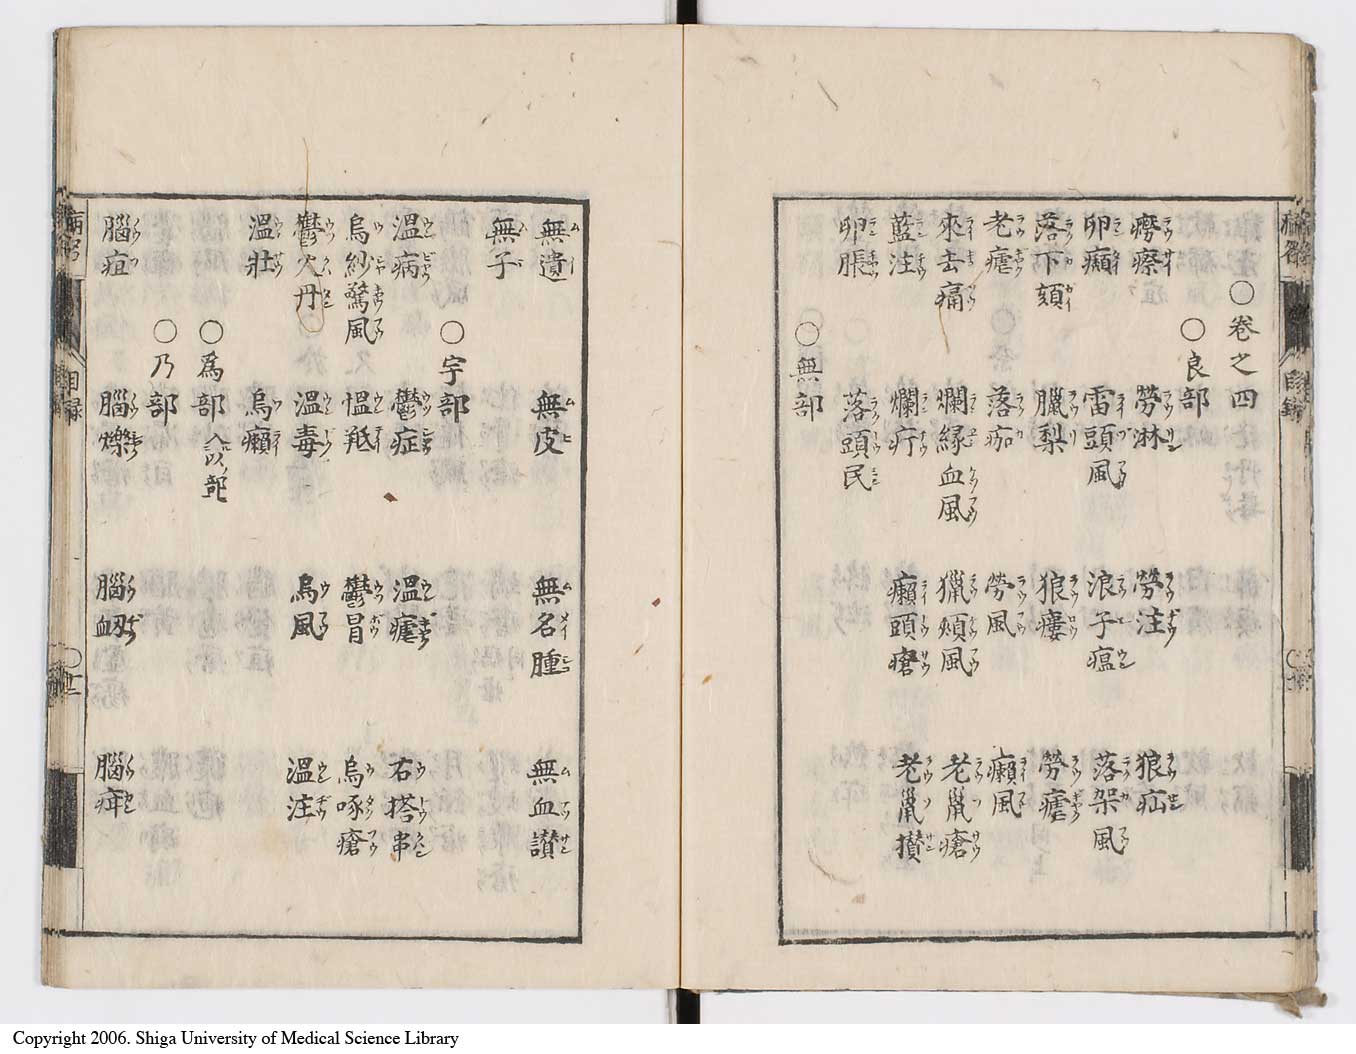 ○巻之四
○良部
癆瘵 勞淋 勞注 狼疝
卵癩 雷頭風 浪子瘟 落架風
落下頦 臘梨 狼瘻 勞瘧
老瘧 落茄 勞風 癩風
來去痛 爛緣血風 獵頰風 老鼠瘡
藍注 爛疔 癩頭瘡 老鼠攢
卵脹 落頭民
○無部
無遺 無皮 無名腫 無血讃
無子
○宇部
溫病 鬱症 溫瘧 右搭串
烏紗驚風 慍羝 鬱冒 烏啄瘡
鬱火丹 溫毒 烏風 溫注
溫壯 烏癩
○爲部
○乃部
腦疽 腦爍 腦衂 腦疳
Copyright 2006. Shiga University of Medical Science Library